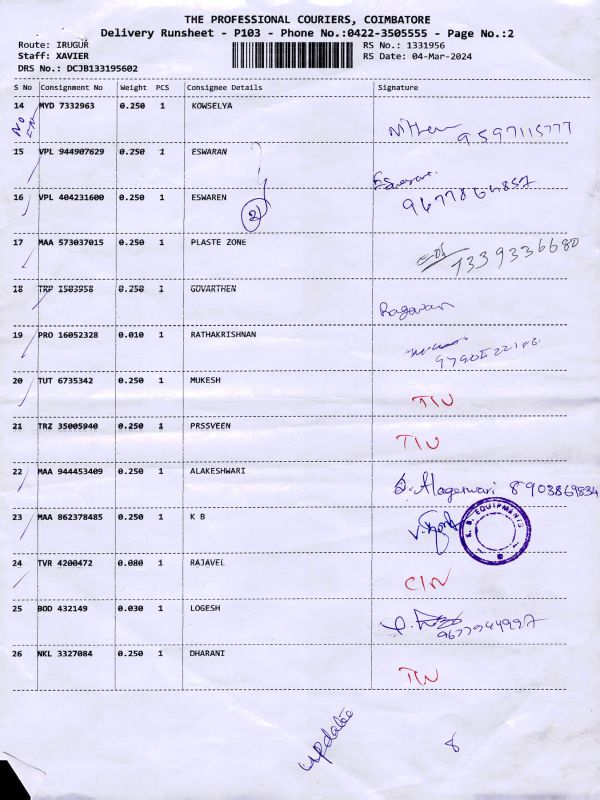 THE PROFESSIONAL COURIERS, COIMBATORE
Delivery Runsheet - P103 - Phone No.:0422-3505555 - Page No.:2
Route: IRUGUR RS No.: 1331956
Staff: XAVIER RS Date: 04-Mar-2024
DRS No.: DCJB133195602
S No Consignment No Weight PCS Consignee Details Signature
14 MYD 7332963 0.250 1 KOWSELYA
9597115777
15 VPL 944907629 0.250 1 ESWARAN
Eswaran.
16 VPL 404231600 0.250 1 ESWAREN
2
17 MAA 573037015 0.250 1 PLASTE ZONE
7339336680
18 TRP 1503958 0.250 1 GOVARTHEN
Ragavan
19 PRO 16052328 0.010 1 RATHAKRISHNAN
20 TUT 6735342 0.250 1 MUKESH
21 TRZ 35005940 0.250 1 PRSSVEEN
22 MAA 944453409 0.250 1 ALAKESHWARI
D. Alageswari 8903869834
23 MAA 862378485 0.250 1 K B
K. B. EQUIPMENTS
24 TVR 4200472 0.080 1 RAJAVEL
25 BOD 432149 0.030 1 LOGESH
9677944997
26 NKL 3327084 0.250 1 DHARANI
update
8